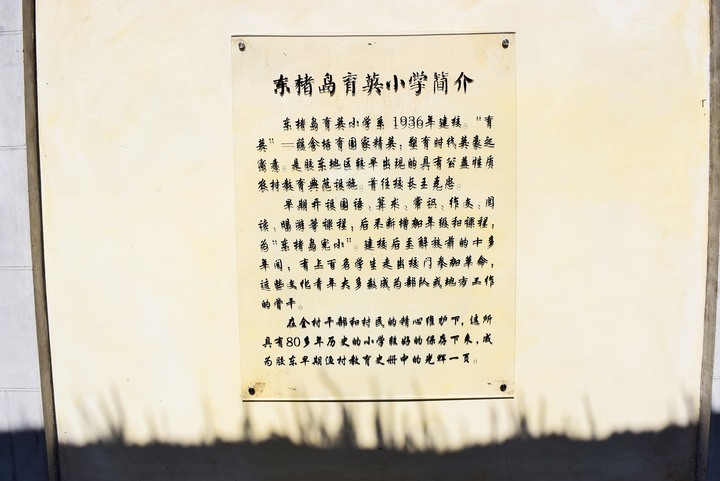 东楮岛育英小学简介
东楮岛育英小学系1936年建校。"育
英"—蕴含培育国家精英,塑育时代英豪之
寓意。是胶东地区较早出现的具有公益性质
农村教育典范设施。首任校长王克忠。
早期开设国语、算术、常识、作文、阅
读、唱游等课程,后来渐增加年级和课程,
为"东楮岛完小"。建校后至解放前的十多
年间,有上百名学生走出校门参加革命,
这些文化青年大多数成为部队或地方工作
的骨干。
在全村干部和村民的精心维护下,这所
具有80多年历史的小学较好的保存下来,成
为胶东早期渔村教育史册中的光辉一页。